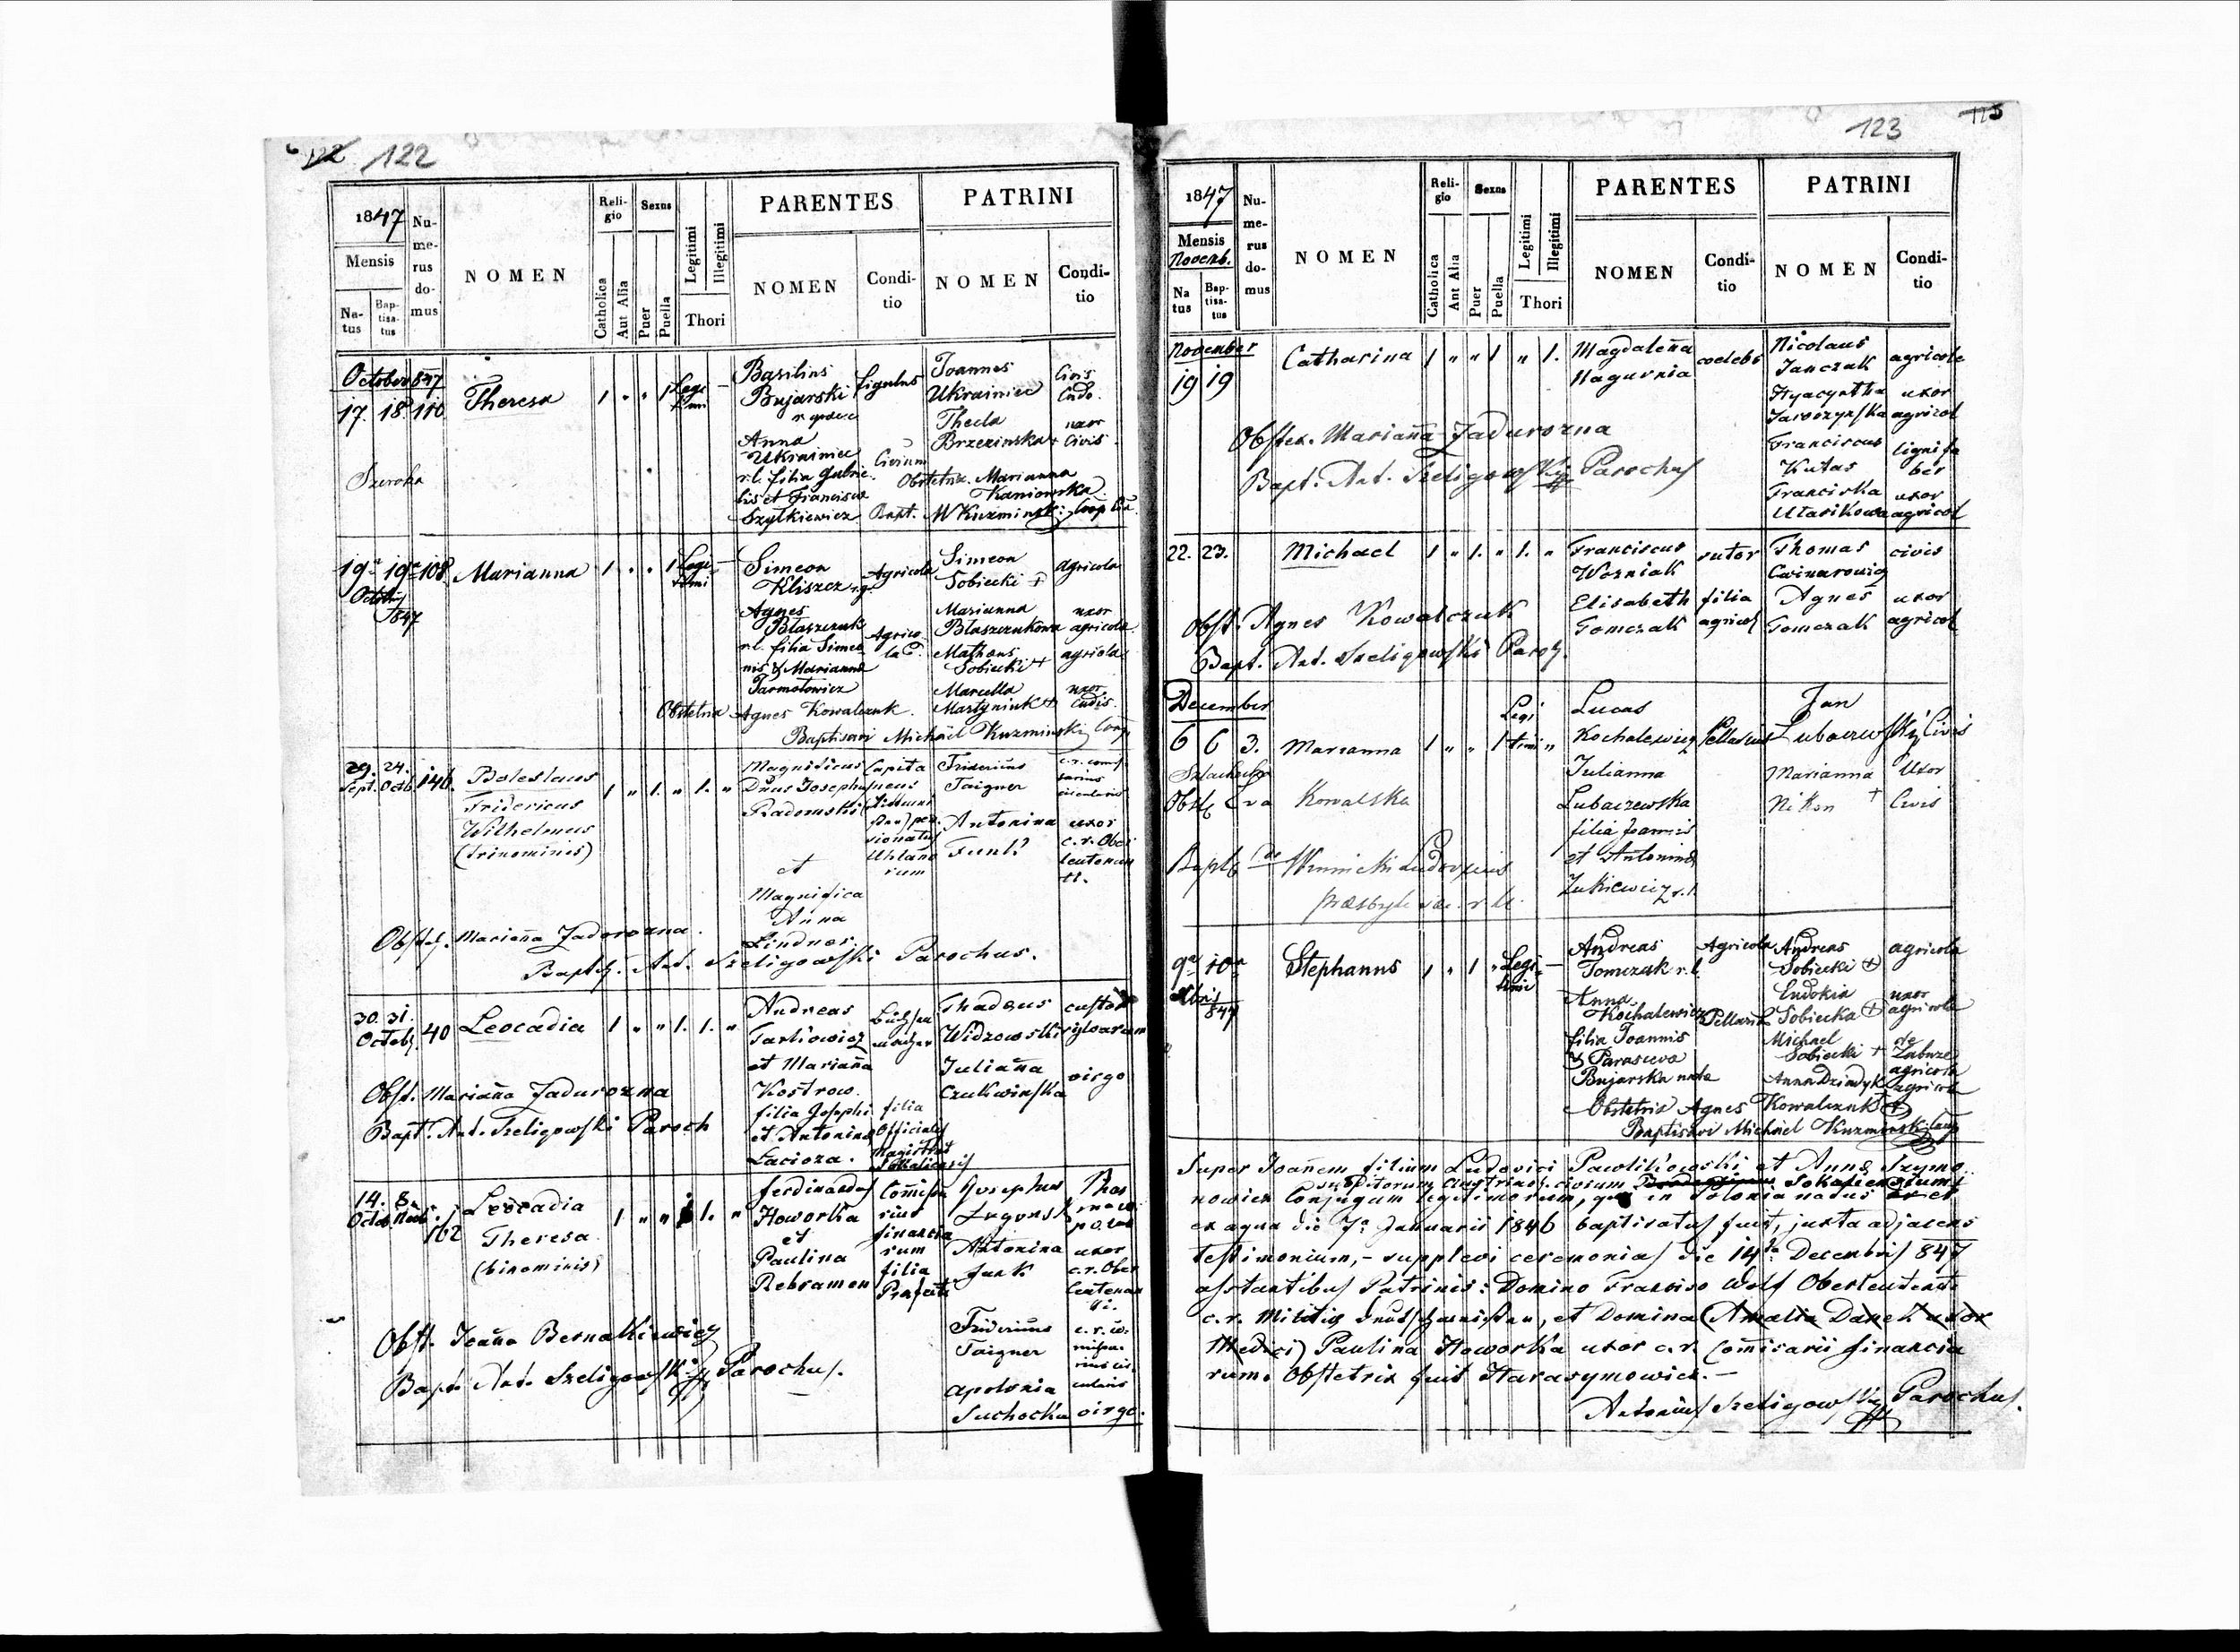 122 122
1847
Mensis
Na-
tus
Bap-
tisa-
tus
Nu-
me-
rus
do-
mus
NOMEN
Reli-
gio
Catholica
Aut Alia
Sexus
Puer
Puella
Legitimi
Illegitimi
Thori
PARENTES
NOMEN
Condi-
tio
PATRINI
NOMEN
Condi-
tio
October 847
17. 18. 110
Theresa
1 " " 1 Legi
timi —
Basilius
Bujarski
Anna
Ukrainiec
r.l. filia Gabrie-
lis et Francisca
Szytkiewicz
figulus
Civium
Joannes
Ukrainiec
Thecla
Brzezinska +
Civis
uxor
Civis
Obstetrix Marianna
Kaniowska
Bapt. M Kuzminski Coop
19a 19a 108
Octobris
847
Marianna
1 " " 1 Legi
timi —
Simeon
Kliszcz r.g.
Agnes
Błaszczuk
r.l. filia Simeo
nis & Marianna
Jarmołowicz
Agricola
Agrico
la
Simeon
Sobiecki +
Marianna
Błaszczukowa
Matheus
Sobiecki +
Marcella
Martyniuk +
agricola
uxor
agricola
agricola
uxor
Obstetrix Agnes Kowalczuk.
Baptisavi Michael Kuzminski Coop
29. 24.
Sept. Octb. 146.
Boleslaus
Fridericus
Wilhelmus
(trinominis)
1 " 1. " 1. "
Magnificus
Dnus Josephus
Radomski
et
Magnifica
Anna
Lindner.
Capita
neus
pen
sionatus
Uhlano
rum
Fridericus
Taigner
Antonina
Funk
uxor
c.r. Ober
leutenan
ti.
Obstet. Mariana Zadorozna.
Bapts. Ant. Szeligowski Parochus.
30. 31.
Octob. 40
Leocadia
1 " " 1. 1. "
Andreas
Tarkowicz
et Mariana
Kostrow.
filia Josephi
et Antonina
Łacioza.
filia
Officialis
Magistrat
Sokaliensis
Thadeus
Widzowski
Juliana
Czukwinska
custos
sylvarum
virgo
Obst. Mariana Zadurozna
Bapt. Ant. Szeligowski Paroch
14. 8.
Octob. Novb. 162
Leocadia
Theresa
(binominis)
1 " " 1 1. "
Ferdinandus
Howorka
et
Paulina
Rehramen
Comisa
rius
financia
rum
filia
Prafecti
Josephus
Antonina
Funk
Fridericus
Taigner
Apolonia
Suchocka
uxor
c.r. Ober
leutenan
ti.
virgo.
Obst. Joana Bernatkiewicz
Bapt. Ant. Szeligowski Parochus.
123 115
1847
Mensis
Novemb.
Na
tus
Bap-
tisa-
tus
Nu-
me-
rus
do-
mus
NOMEN
Reli-
gio
Catholica
Aut Alia
Sexus
Puer
Puella
Legitimi
Illegitimi
Thori
PARENTES
NOMEN
Condi-
tio
PATRINI
NOMEN
Condi-
tio
November
19 19
Catharina
1 " " 1 " 1.
Magdalena
Nagurnia
coelebs
Nicolaus
Janczak
Hyacyntha
Jaroszynska
Franciscus
Kutas
Franciska
Utasikowa
agricola
uxor
agricol
lignifa
ber
uxor
agricol
Obstet. Mariana Zadurozna
Bapt. Ant. Szeligowski Parochus
22. 23.
Michael
1 " 1. " 1. "
Franciscus
Wozniak
Elisabeth
Tomczak
sutor
filia
agricol
Thomas
Agnes
Tomczak
civis
uxor
agricol
Obst. Agnes Kowalczuk
Bapt. Ant. Szeligowski Paroch.
December
6 6 3.
Marianna
1 " " 1 Legi
timi "
Lucas
Kochalewicz
Julianna
Lubaczewska
filia Joannis
et Antonina
Zukiewicz r.l.
Pellarius
Jan
Lubaczewski
Marianna
Nikon +
Civis
Uxor
Civis
Obstt Eva Kowalska
Ludovicus
presbyter
9a 10a
Xbris
847
Stephanus
1 " 1 " Legi
timi —
Andreas
Tomczak r.l.
Anna
Kochalewicz
filia Joannis
& Parasceva
Bujarska nata
Agricola
Andreas
Sobiecki +
Eudokia
Sobiecka +
Michael
Sobiecki +
Anna Dziadyk
agricola
uxor
agricola
de
Zabuze
agricola
agricola
Obstetrix Agnes Kowalczuk +
Baptisavi Michael Kuzminski Coop
Super Joanem filium Ludovici Pawlikowski et Anna Szymo
subditorum Austriae, civium Sokaliensium
nowicz Conjugum legitimorum, qui in Polonia natus et
ex aqua die 7a Januarii 1846 baptisatus fuit, juxta adjacens
testimonium, – supplevi ceremonias die 14ta Decembris 847
astantibus Patrinis: Domino Francisco Wolf Oberleutenante
c.r. Militis, et Domina (Amalia Danek uxor
Medici) Paulina Howorka uxor c.r. Comisarii financia
rum. Obstetrix fuit Harasymowicz. –
Antonius Szeligowski Parochus.